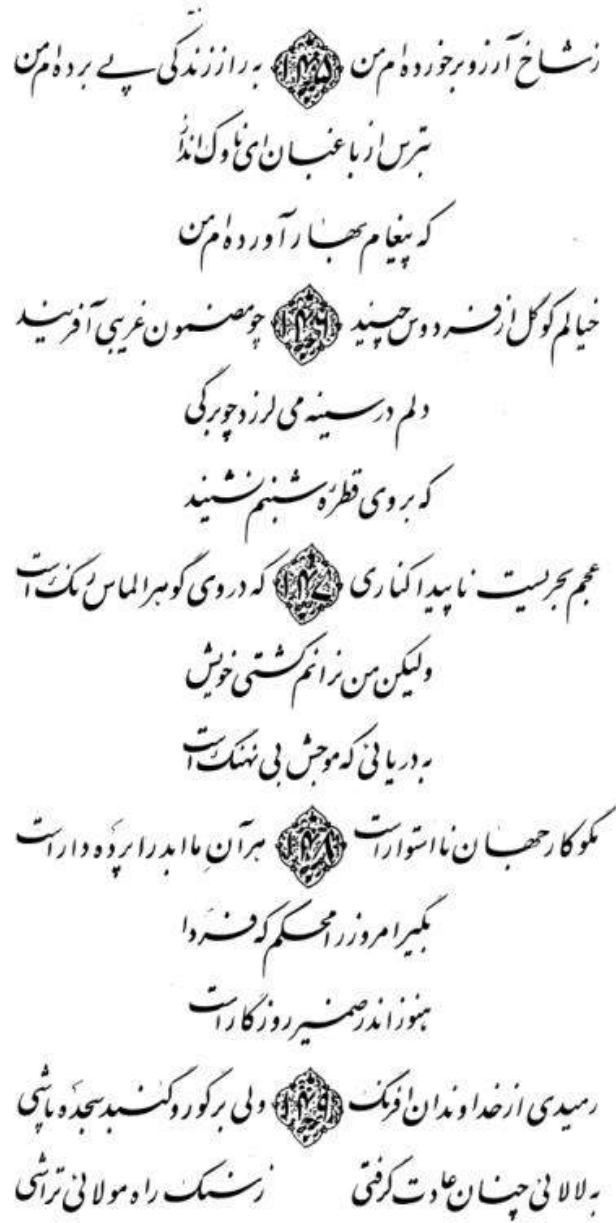 ز شاخ آرزو بر خورده‌ام من ۱۴۵ به راز زندگی پے برده‌ام من
بترس از باغبان ای ناوک انداز
که پیغام بهار آورده‌ام من
خیالم کو گل از فردوس چیند ۱۴۶ چو مضمون غریبی آفریند
دلم در سینه می لرزد چو برگی
که بر وی قطرهٔ شبنم نشیند
عجم بحریست ناپیدا کناری ۱۴۷ که در وی گوهر الماس رنگ است
ولیکن من نرانم کشتی خویش
به دریائی که موجش بی نهنگ است
مگو کار جهان نااستوار است ۱۴۸ هر آنِ ما ابد را پرده دار است
بگیر امروز را محکم که فردا
هنوز اندر ضمیر روزگار است
رمیدی از خداوندان افرنگ ۱۴۹ ولی بر گور و گنبد سجده پاشی
به لالائی چنان عادت گرفتی ز سنگ راه مولائی تراشی